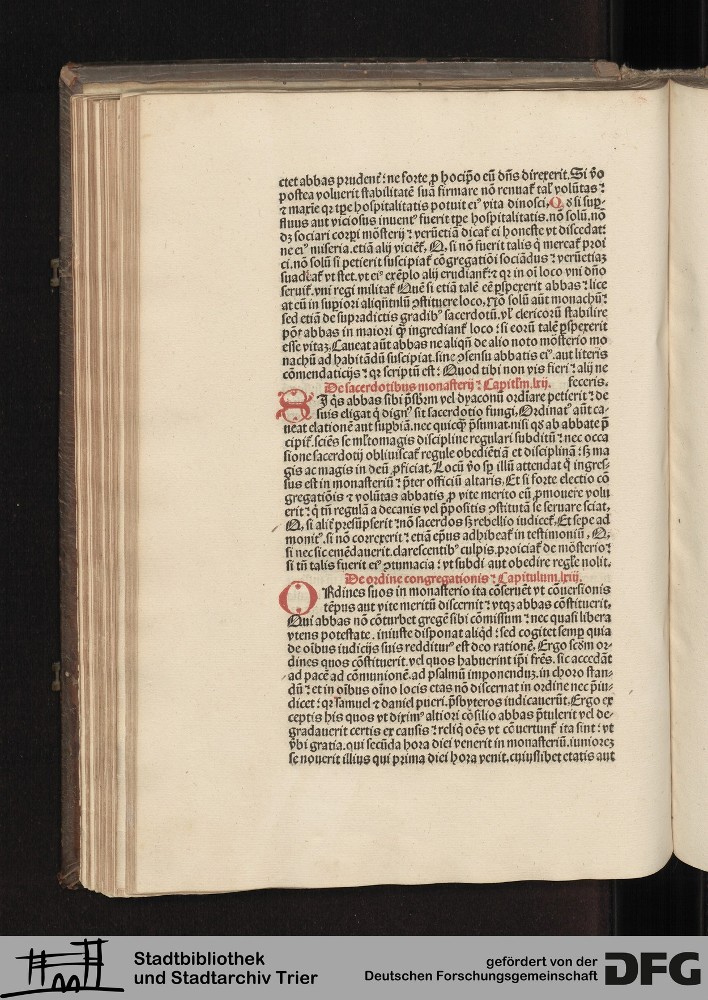 ctet abbas prudenť: ne forte ꝓ hoc ip̄o eū dn̄s direxerit. Si ṽo
postea voluerit stabilitatē suā firmare nō renuať tal' volūtas ⁊
⁊ maxīe qꝛ tꝑe hospitalitatis potuit eiꝰ vita dinosci. Qd̛ si suꝑ-
fluus aut viciosus inuenť fuerit tꝑe hospitalitatis. nō solū. nō
dꝫ sociari corꝑi mōsterij ⁊ verūetiā dicať ei honeste vt discedat:
ne eiꝰ miseria. etiā alij vicienť. Q, si nō fuerit talis q̇ mereať proi
ci. nō solū si petierit suscipiať cōgregatiōi sociādus ⁊ verūetiaꝫ
suadeať vt stet. vt eiꝰ exēplo alij erudianť ⁊ qꝛ in oī loco vni dn̄o
seruiť. vni regi militať Quē si etiā talē eē ꝑspexerit abbas ⁊ lice
at eū in suꝑiori aliqn̄tulū ꝯstituere loco. Nō solū aūt monachū ⁊
sed etiā de suṗadictis gradibꝰ sacerdotū. vl' clericorū stabilire
pōť abbas in maiori q̇ ingredianť loco : si eorū talē ꝑspexerit
esse vitaꝫ. Caueat aūt abbas ne aliqn̄ de alio noto mōsterio mo
nachū ad habitādū suscipiat. sine ꝯsensu abbatis eiꝰ. aut literis
cōmendaticijs ⁊ qꝛ scriptū est : Quod tibi non vis fieri ⁊ alij ne
feceris.
De sacerdotibus monasterij ⁊ Capitl'm. lxij.
SI q̇s abbas sibi p̄sbr̄m vel dyaconū ordiare petierit ⁊ de
suis eligat q̇ dignꝰ sit sacerdotio fungi. Ordinatꝰ aūt ca-
ueat elationē aut suꝑbiā. nec quicꝗ̃ p̄sumat. nisi qd̛ ab abbate p̄
cipiť. sciēs se ml'tomagis discipline regulari subditū ⁊ nec occa
sione sacerdotij obliuiscať regule obediētiā et disciplinā : sꝫ ma
gis ac magis in deū ꝓficiat. Locū ṽo sꝑ illū attendat q̇ ingres-
sus est in monasteriū ⁊ p̄ter officiū altaris. Et si forte electio cō
gregatiōis ⁊ volūtas abbatis ꝓ vite merito eū ꝓmouere volu
erit ⁊ q̇ tn̄ regulā a decanis vel p̄positis ꝯstitutā se seruare sciat.
Q, si alif̄ presūpserit ⁊ nō sacerdos sꝫ rebellio iudiceť. Et sepe ad
monitꝰ. si nō correxerit ⁊ etiā ep̄us adhibeať in testimoniū. Q,
si nec sic emēdauerit. clarescentibꝰ culpis. proiciať de mōsterio ⁊
si tn̄ talis fuerit eiꝰ ꝯtumacia : vt subdi aut obedire regl'e nolit.
De ordine congregationis ⁊ Capitulum. lxiij.
ORdines suos in monasterio ita cōseruēt vt cōuersionis
tēpus aut vite meritū discernit ⁊ vtqꝫ abbas cōstituerit.
Qui abbas nō cōturbet gregē sibi cōmissum ⁊ nec quasi libera
vtens potestate. iniuste disponat aliqd̛ : sed cogitet semꝑ quia
de oībus iudicijs suis redditurꝰ est deo rationē. Ergo scdm̄ or-
dines quos cōstituerit. vel quos habuerint ip̄i fr̄es. sic accedāt
ad pacē ad cōmunionē. ad psalmū imponenduꝫ. in choro stan-
dū ⁊ et in oībus oīno locis etas nō discernat in ordine nec p̄iu-
dicet : qꝛ samuel ⁊ daniel pueri. p̄sbyteros iudicauerūt. Ergo ex
ceptis his quos vt diximꝰ altiori cōsilio abbas p̄tulerit vel de-
gradauerit certis ex causis ⁊ reliq̇ oēs vt cōuertunť ita sint : vt
v̄bi gratia. qui secūda hora diei venerit in monasteriū. iuniorez
se nouerit illius qui prima diei hora venit. cuiuslibet etatis aut
Stadtbibliothek
und Stadtarchiv Trier
gefördert von der
Deutschen Forschungsgemeinschaft
DFG